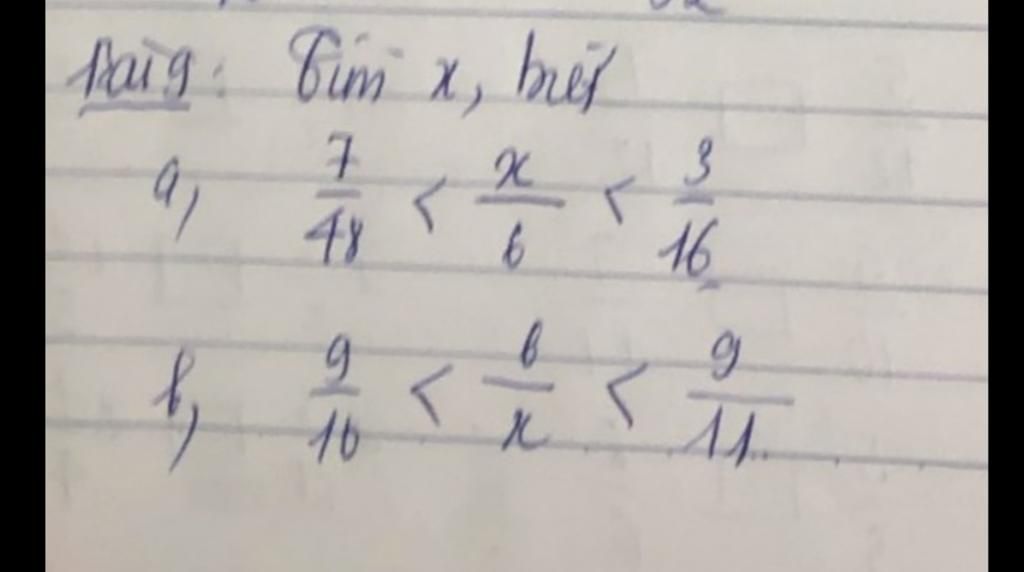 Bài 9: Tìm x, biết
a, 7/48 < x/6 < 3/16
b, 9/16 < 6/x < 9/11